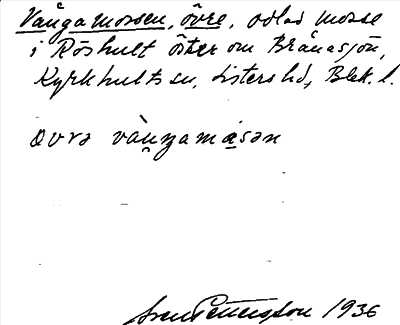 Vångamossen, övre, odlad mosse
i Röshult öster om Brånasjön,
Kyrkhults sn, Listers hd, Blek. l.
övrə våŋgamåsən
Sven Pettersson 1936